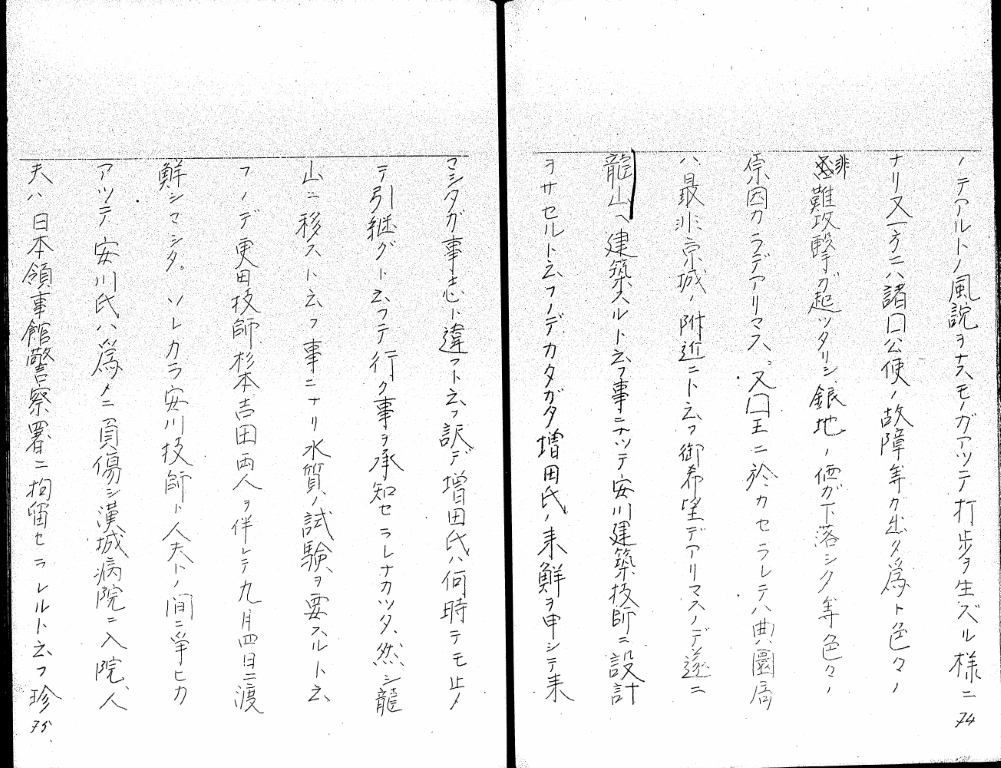 ノテアルトノ風説ヲナスモノガアツテ打歩ヲ生ズル様ニ
ナリ又一方ニハ諸囗公使ノ故障等ク出ク為ト色々ノ
非難攻撃ガ起ツタリシ銀地ノ価ガ下落シク等色々ノ
原因カラデアリマス。又囗王ニ於カセラレテハ典圜局
ハ最非京城ノ附近ニト云フ御希望デアリマスノデ遂ニ
龍山ヘ建築スルト云フ事ニナツテ安川建築技師ニ設計
ヲサセルト云フノデカタガタ増田氏ノ来鮮ヲ申シテ来
74
マシタガ事志ト違フト云フ訳デ増田氏ハ何時テモ止メ
テ引継グト云フテ行ク事ヲ承知セラレナカツタ、然シ龍
山ニ移スト云フ事ニナリ水質ノ試験ヲ要スルト云
フノデ更田技師杉本吉田両人ヲ伴レテ九月四日ニ渡
鮮シマシタ。ソレカラ安川技師ト人夫トノ間ニ争ヒカ
アツテ安川氏ハ為メニ負傷シ漢城病院ニ入院、人
夫ハ日本領事館警察署ニ拘留セラレルト云フ珍
75